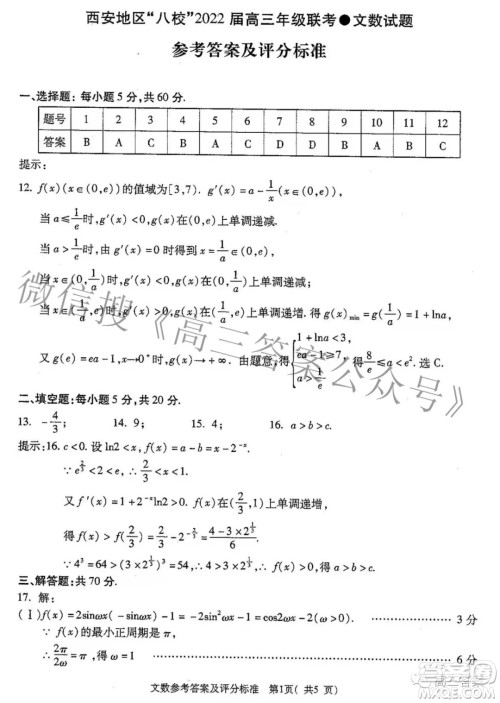 西安地区“八校”2022届高三年级联考●文数试题
参考答案及评分标准
一、选择题：每小题5分，共60分.
题号 1 2 3 4 5 6 7 8 9 10 11 12
答案 B A C B A C D C A B D C
提示：
12. f(x)(x∈(0,e))的值域为[3,7). g′(x)=a-1/x(x∈(0,e)),
当a≤1/e时,g′(x)<0,g(x)在(0,e)上单调递减.
当a>1/e时,由g′(x)=0时得到x=1/a.
当x∈(0,1/a)时,g′(x)<0,g(x)在(0,1/a)上单调递减.
当x∈(1/a,e)时,g′(x)>0,g(x)在(1/a,e)上单调递增. 得g(x)min=g(1/a)=1+lna,
又g(e)=ea-1,x→0⁺时,g(x)→+∞. 由题意,得{1+lna<3, ea-1≥7, a>1/e 得8/e≤a<e². 选C.
二、填空题：每小题5分,共20分.
13. -4/3; 14. 9; 15. 2; 16. a>b>c.
提示:16. c<0. 设ln2<x, f(x)=a-b=x-2⁻ˣ.
∵e^(2/3)<2<e, ∴2/3<ln2<1.
又f′(x)=1+2⁻ˣln2>0,∴f(x)在(2/3,1)上单调递增,
∴f(x)>f(2/3)=2/3-2^(-2/3)=(4-3×2^(1/3))/6.
∵4³=64>(3×2^(1/3))³=54,∴4>3×2^(1/3). ∴a>b>c.
三、解答题:共70分.
17. 解:
(Ⅰ)f(x)=2sinωx(-sinωx)-1=-2sin²ωx-1=cos2ωx-2(ω>0). 3分
∵f(x)的最小正周期是π,
∴2π/2ω=π. ∴ω=1. 6分
文数参考答案及评分标准 第1页(共5页)
微信搜《高三答案公众号》